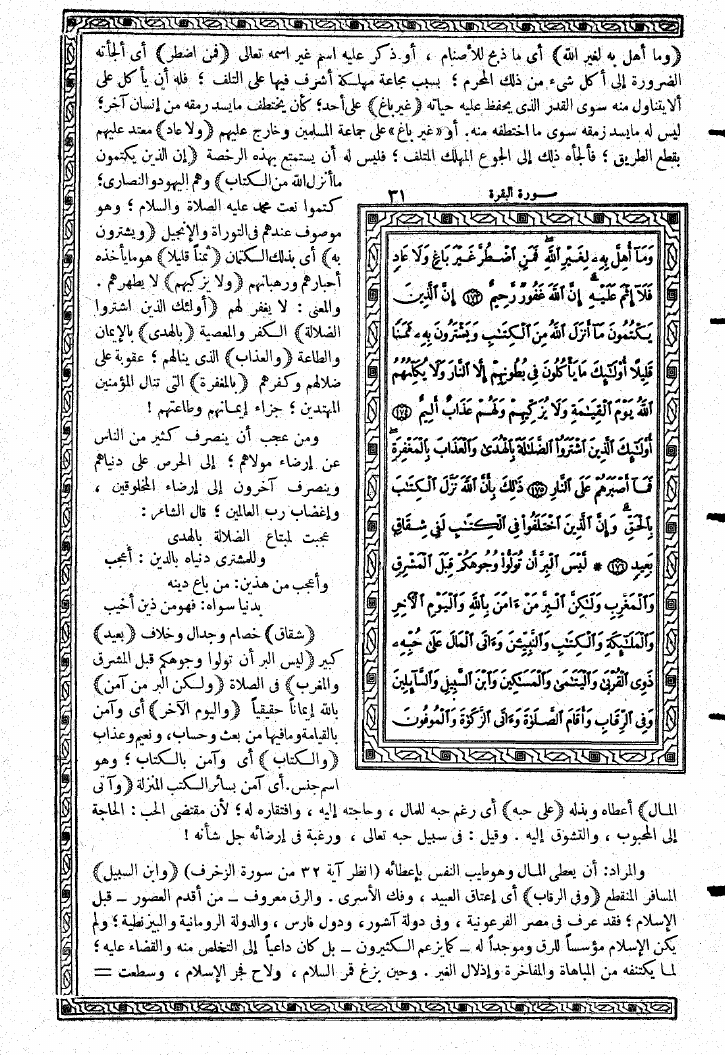 ﴿وما أهل به لغير الله﴾ أى ما ذبح للأصنام ، أو ذكر عليه اسم غير اسمه تعالى ﴿فمن اضطر﴾ أى ألجأته
الضرورة إلى أكل شىء من ذلك المحرم ؛ بسبب مجاعة مهلكة أشرف فيها على التلف ؛ فله أن يأكل على
ألا يتناول منه سوى القدر الذى يحفظ عليه حياته ﴿غير باغ﴾ على أحد؛ كأن يختطف مايسد رمقه من إنسان آخر؛
ليس له مايسد رمقه سوى ما اختطفه منه. أو «غير باغ» على جماعة المسلمين وخارج عليهم ﴿ولا عاد﴾ معتد عليهم
بقطع الطريق ؛ فألجأه ذلك إلى الجوع المهلك المتلف ؛ فليس له أن يستمتع بهذه الرخصة ﴿إن الذين يكتمون
ماأنزل الله من الكتاب﴾ وهم اليهود والنصارى؛
كتموا نعت محمد عليه الصلاة والسلام ؛ وهو
موصوف عندهم فى التوراة والإنجيل ﴿ويشترون
به﴾ أى بذلك الكتمان ﴿ثمناً قليلا﴾ هو مايأخذه
أحبارهم ورهبانهم ﴿ولا يزكيهم﴾ لا يطهرهم .
والمعنى : لا يغفر لهم ﴿أولئك الذين اشتروا
الضلالة﴾ الكفر والمعصية ﴿بالهدى﴾ بالإيمان
والطاعة ﴿والعذاب﴾ الذى ينالهم ؛ عقوبة على
ضلالهم وكفرهم ﴿بالمغفرة﴾ التى تنال المؤمنين
المهتدين ؛ جزاء إيمانهم وطاعتهم !
ومن عجب أن ينصرف كثير من الناس
عن إرضاء مولاهم ؛ إلى الحرص على دنياهم
وينصرف آخرون إلى إرضاء المخلوقين ،
وإغضاب رب العالمين ؛ قال الشاعر :
عجبت لمبتاع الضلالة بالهدى
وللمشترى دنياه بالدين : أعجب
وأعجب من هذين: من باع دينه
بدنيا سواه: فهو من ذين أخيب
﴿شقاق﴾ خصام وجدال وخلاف ﴿بعيد﴾
كبير ﴿ليس البر أن تولوا وجوهكم قبل المشرق
والمغرب﴾ فى الصلاة ﴿ولكن البر من آمن﴾
بالله إيماناً حقيقياً ﴿واليوم الآخر﴾ أى وآمن
بالقيامة ومافيها من بعث وحساب، ونعيم وعذاب
﴿والكتاب﴾ أى وآمن بالكتاب ؛ وهو
اسم جنس. أى آمن بسائر الكتب المنزلة ﴿وآتى
سورة البقرة ٣١
وَمَآ أُهِلَّ بِهِۦ لِغَيْرِ ٱللَّهِ فَمَنِ ٱضْطُرَّ غَيْرَ بَاغٍ وَلَا عَادٍ
فَلَآ إِثْمَ عَلَيْهِ إِنَّ ٱللَّهَ غَفُورٌ رَّحِيمٌ ١٧٣ إِنَّ ٱلَّذِينَ
يَكْتُمُونَ مَآ أَنزَلَ ٱللَّهُ مِنَ ٱلْكِتَٰبِ وَيَشْتَرُونَ بِهِۦ ثَمَنًا
قَلِيلًا أُوْلَٰٓئِكَ مَا يَأْكُلُونَ فِى بُطُونِهِمْ إِلَّا ٱلنَّارَ وَلَا يُكَلِّمُهُمُ
ٱللَّهُ يَوْمَ ٱلْقِيَٰمَةِ وَلَا يُزَكِّيهِمْ وَلَهُمْ عَذَابٌ أَلِيمٌ ١٧٤
أُوْلَٰٓئِكَ ٱلَّذِينَ ٱشْتَرَوُاْ ٱلضَّلَٰلَةَ بِٱلْهُدَىٰ وَٱلْعَذَابَ بِٱلْمَغْفِرَةِ
فَمَآ أَصْبَرَهُمْ عَلَى ٱلنَّارِ ١٧٥ ذَٰلِكَ بِأَنَّ ٱللَّهَ نَزَّلَ ٱلْكِتَٰبَ
بِٱلْحَقِّ وَإِنَّ ٱلَّذِينَ ٱخْتَلَفُواْ فِى ٱلْكِتَٰبِ لَفِى شِقَاقٍ
بَعِيدٍ ١٧٦ * لَّيْسَ ٱلْبِرَّ أَن تُوَلُّواْ وُجُوهَكُمْ قِبَلَ ٱلْمَشْرِقِ
وَٱلْمَغْرِبِ وَلَٰكِنَّ ٱلْبِرَّ مَنْ ءَامَنَ بِٱللَّهِ وَٱلْيَوْمِ ٱلْءَاخِرِ
وَٱلْمَلَٰٓئِكَةِ وَٱلْكِتَٰبِ وَٱلنَّبِيِّـۧنَ وَءَاتَى ٱلْمَالَ عَلَىٰ حُبِّهِۦ
ذَوِى ٱلْقُرْبَىٰ وَٱلْيَتَٰمَىٰ وَٱلْمَسَٰكِينَ وَٱبْنَ ٱلسَّبِيلِ وَٱلسَّآئِلِينَ
وَفِى ٱلرِّقَابِ وَأَقَامَ ٱلصَّلَوٰةَ وَءَاتَى ٱلزَّكَوٰةَ وَٱلْمُوفُونَ
المال﴾ أعطاه وبذله ﴿على حبه﴾ أى رغم حبه للمال ، وحاجته إليه ، وافتقاره له؛ لأن مقتضى الحب : الحاجة
إلى المحبوب ، والتشوق إليه . وقيل : فى سبيل حبه تعالى ، ورغبة فى إرضائه جل شأنه !
والمراد: أن يعطى المال وهو طيب النفس بإعطائه (انظر آية ٣٢ من سورة الزخرف) ﴿وابن السبيل﴾
المسافر المنقطع ﴿وفى الرقاب﴾ أى إعتاق العبيد ، وفك الأسرى . والرق معروف ـ من أقدم العصور ـ قبل
الإسلام ؛ فقد عرف فى مصر الفرعونية ، وفى دولة آشور، ودول فارس ، والدولة الرومانية والبيزنطية ؛ ولم
يكن الإسلام مؤسساً للرق وموجداً له ـ كما يزعم الكثيرون ـ بل كان داعياً إلى التخلص منه والقضاء عليه ؛
لما يكتنفه من المباهاة والمفاخرة وإذلال الغير . وحين بزغ قمر السلام ، ولاح فجر الإسلام ، وسطعت =